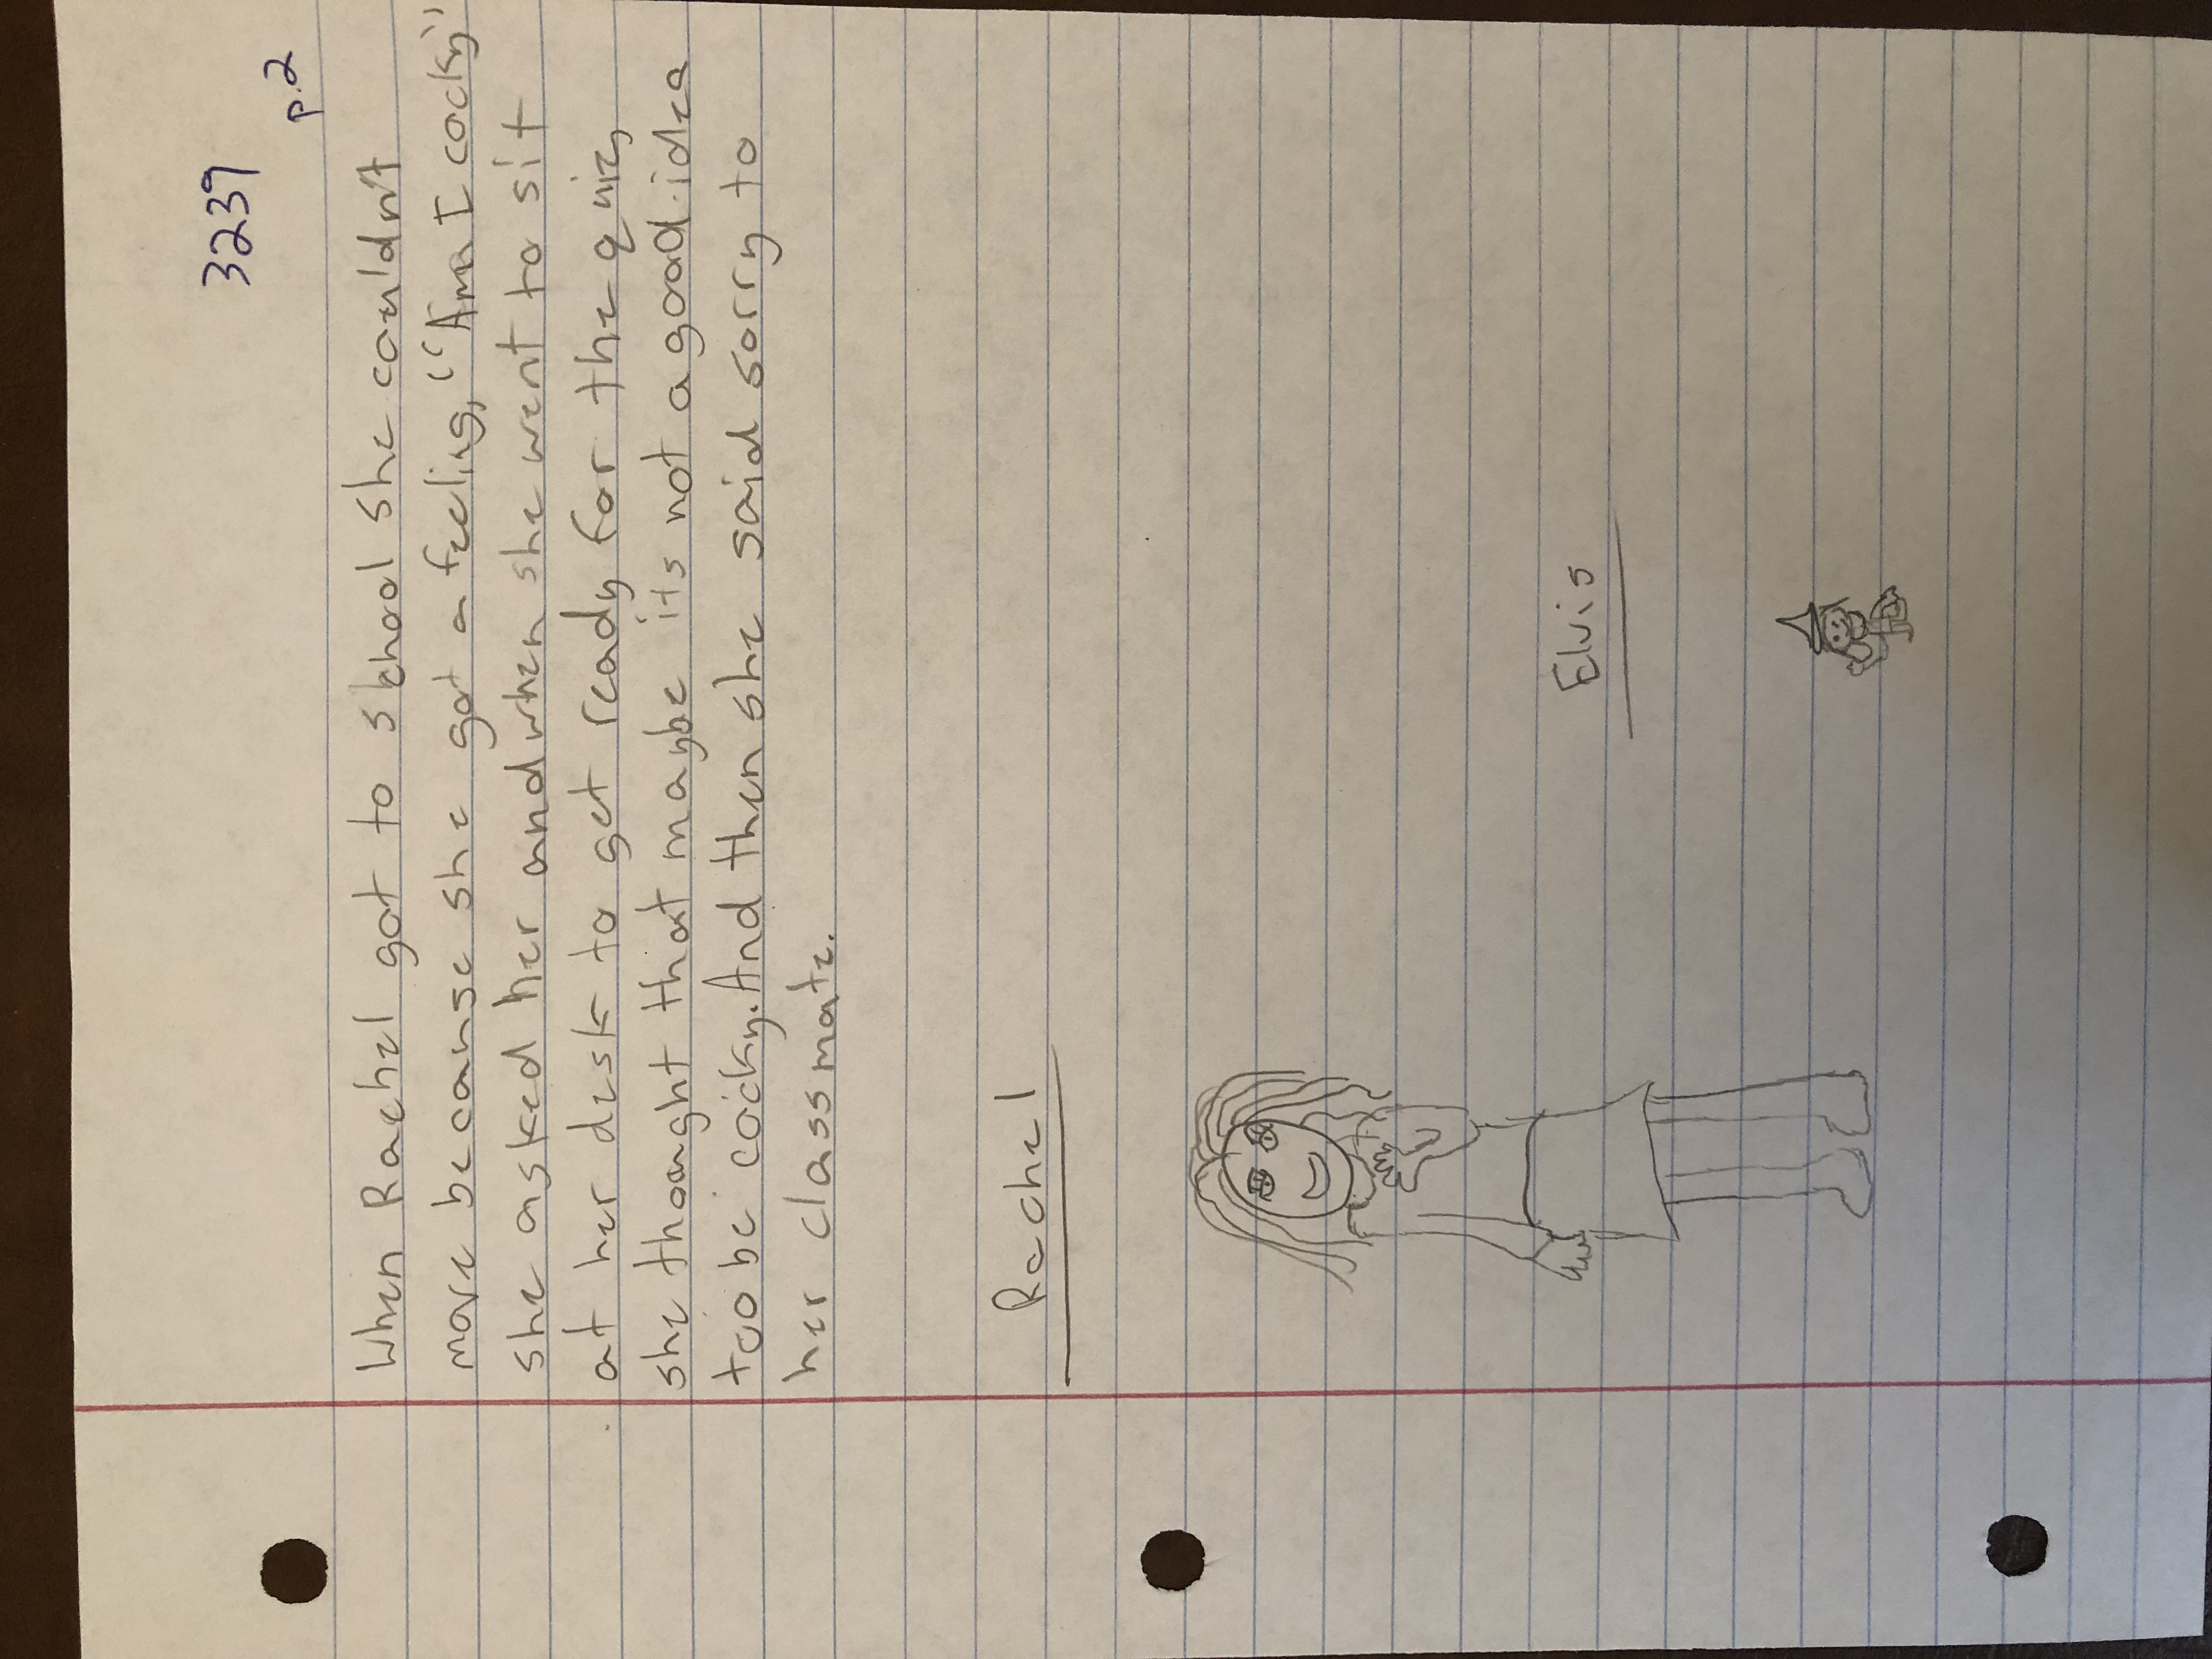 3239
p.2
When Rachel got to skhool she couldn't
move because she got a feeling, "Am I cocky"
she asked her and when she went to sit
at her desk to get ready for the quiz,
she thought that maybe its not a good idea
too be cocky. And then she said sorry to
her classmate.
Rachel
Elvis